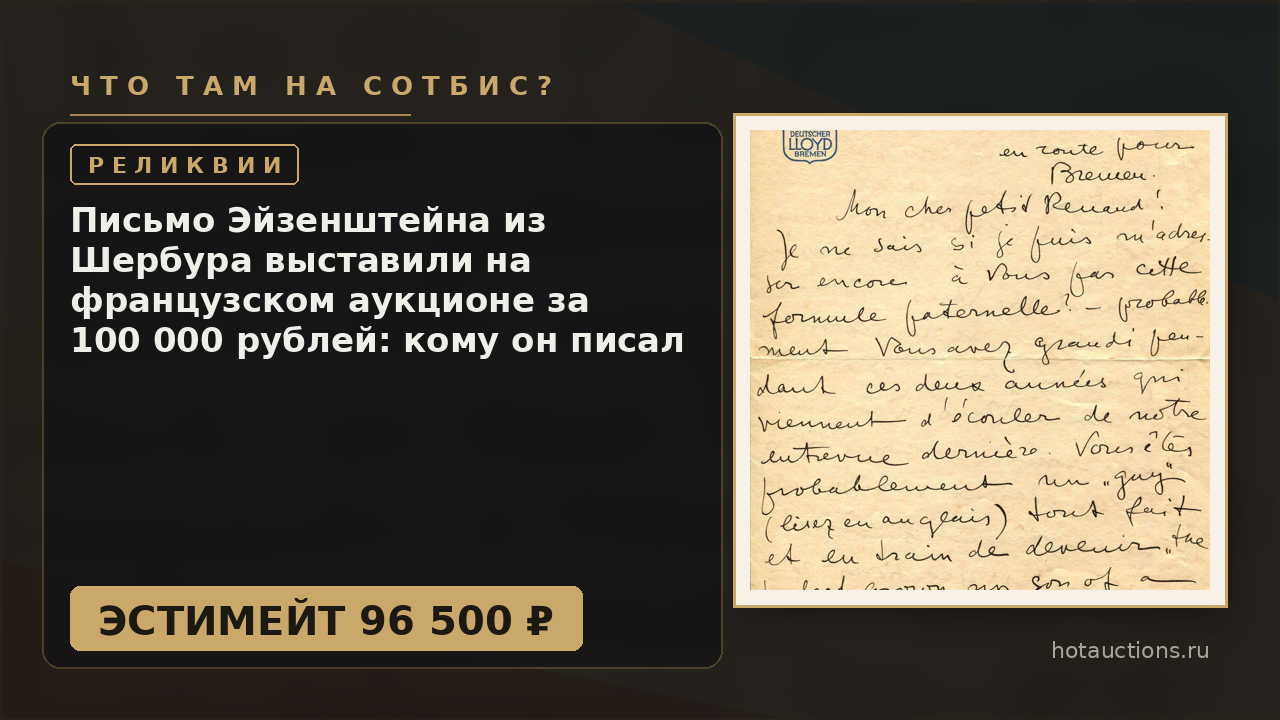 ЧТО ТАМ НА СОТБИС?
РЕЛИКВИИ
Письмо Эйзенштейна из
Шербура выставили на
французском аукционе за
100 000 рублей: кому он писал
ЭСТИМЕЙТ 96 500 ₽
DEUTSCHER
LLOYD
BREMEN
en route pour
Bremen.
Mon cher petit Renaud!
Je ne sais si je puis m'adres-
ser encore à Vous par cette
formule paternelle? – probable-
ment Vous avez grandi pen-
dant ces deux années qui
viennent d'écouler de notre
entrevue dernière. Vous êtes
probablement un „guy"
(lisez en anglais) tout fait
et en train de devenir „the
son of a
hotauctions.ru